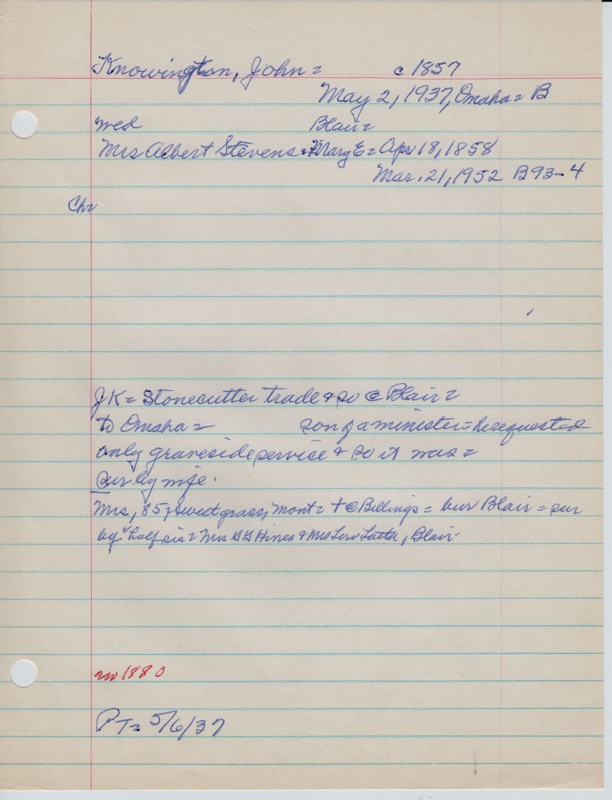 Knowington, John = c 1857
May 2, 1937, Omaha = B
wed Blair =
Mrs Albert Stevens = Mary E = Apr 18, 1858
Mar. 21, 1952 B93-4
Ch=
JK = Stonecutter trade & so @ Blair =
to Omaha = son of a minister = he requested
only graveside service & so it was =
sur by wife.
Mrs, 85, Sweetgrass, Mont = + @ Billings = bur Blair = sur
by half sis = Mrs G G Hines & Mrs Lou Latta, Blair.
no 1880
PT = 5/6/37